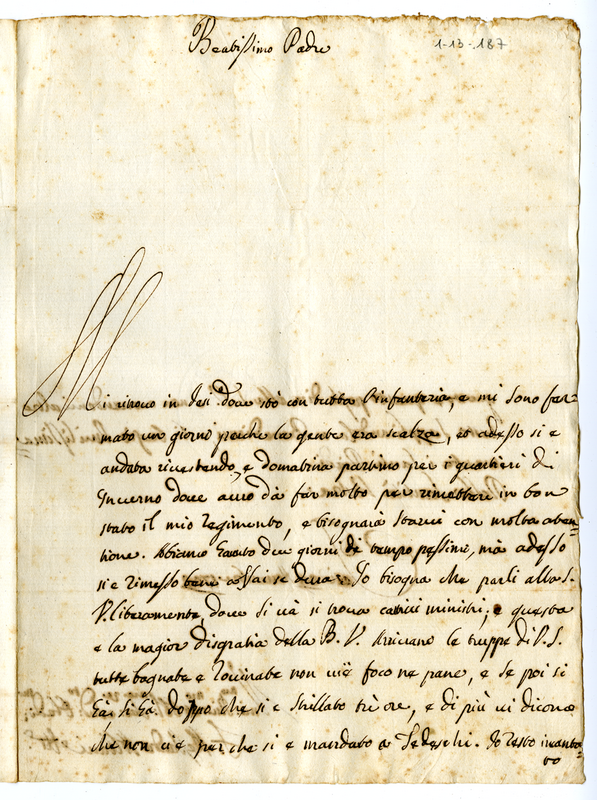 Beatissimo Padre
1-13-187
Mi ritrovo in Jesi dove stò con tutta l'infanteria, e mi sono fer=
mato un giorni perche la gente era scalza, et adesso si è
andata rivestendo, e domatina partino per i quartieri di
Inverno dove avrò dà far molto per rimettere in bon
stato il mio regimento, e bisognarà starvi con molta aten=
tione. Abbiamo hauto due giorni di tempo pessimi, mà adesso
si è rimesso bene assai se dura. Io bisogna che parli alla S.
V. liberamente, dove si và si trova cativi ministri, e questa
e la magior disgratia della B. V. Arivano le truppe di V. S.
tutte bagnate e rovinate non vi è foco ne pane, e se poi si
hà si hà doppo che si è strillato trè ore, e di più vi dicono
che non ci è perche si è mandato a Tedeschi. Io resto
vo